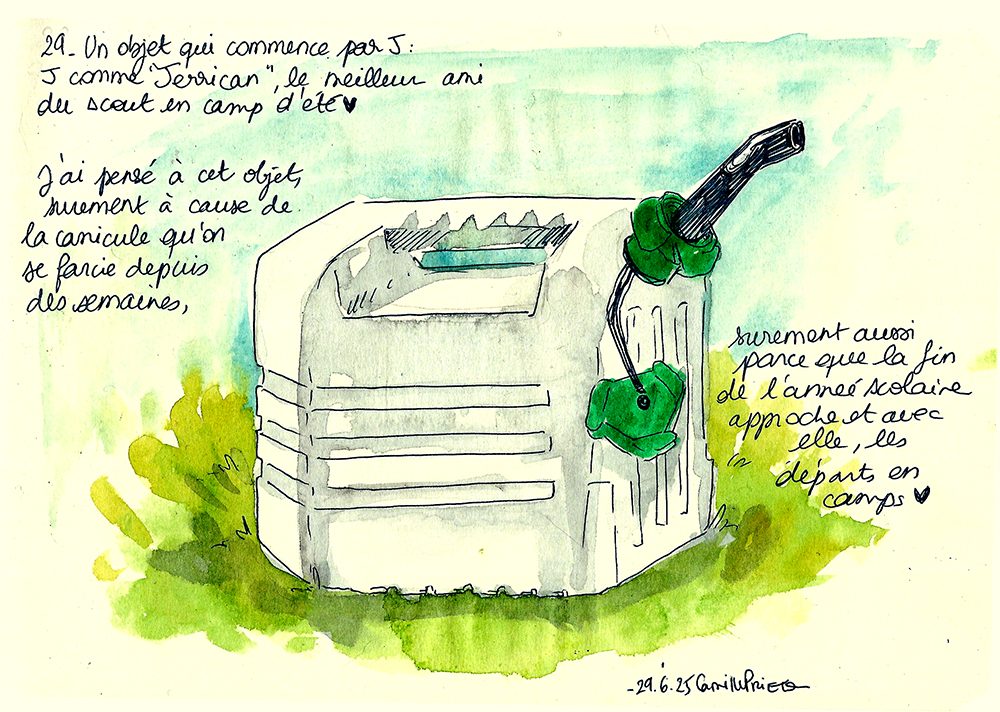 29_ Un objet qui commence par J:
J comme "Jerrican", le meilleur ami
du scout en camp d'été♥
J'ai pensé à cet objet,
surement à cause de
la canicule qu'on
se farcie depuis
des semaines,
surement aussi
parce que la fin
de l'année scolaire
approche et avec
elle, les
départs en
camps ♥
-29.6.25 Camille